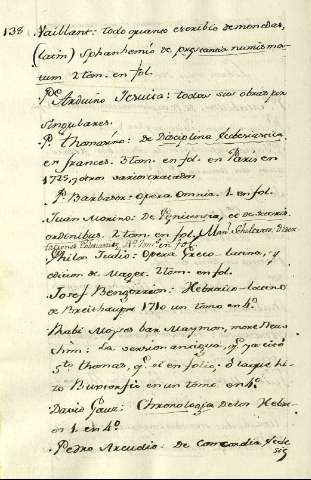 138. Vaillant: todo quanto escribio de monedas,
(latin) Sphanhemio de prestantia numisma-
tum 2 tom. en fol.
Pe. Arduino Jesuita: todas sus obras por
singulares.
P. thomasino: de Disciplina Eclesiastica
en frances. 3 tom. en fol. en Paris en
1725, y otros varios tratados
P. Barbosa: opera omnia. 1. en fol.
Juan Morino: De Penitencia, et de sacris
ordinibus. 2 tom. en fol.
en fol.
Philon Judio: Opera Greco-latina, y
edicion de Mager. 2 tom. en fol.
Josef Bengorion: Hebraico-latino
de Breithaupt 1710 un tomo en 4º
Rabi Moyses bar Maymon, more Nevu
chim: La version antigua, q. ya citó
Sto. thomas, q. es en folio; ó la que hi-
zo Buxtorfio en un tomo en 4º
David Gauz: Chronologia de los Hebre-
os 1. en 4º
Pedro Arcudio. De Concordia Eccle
sie